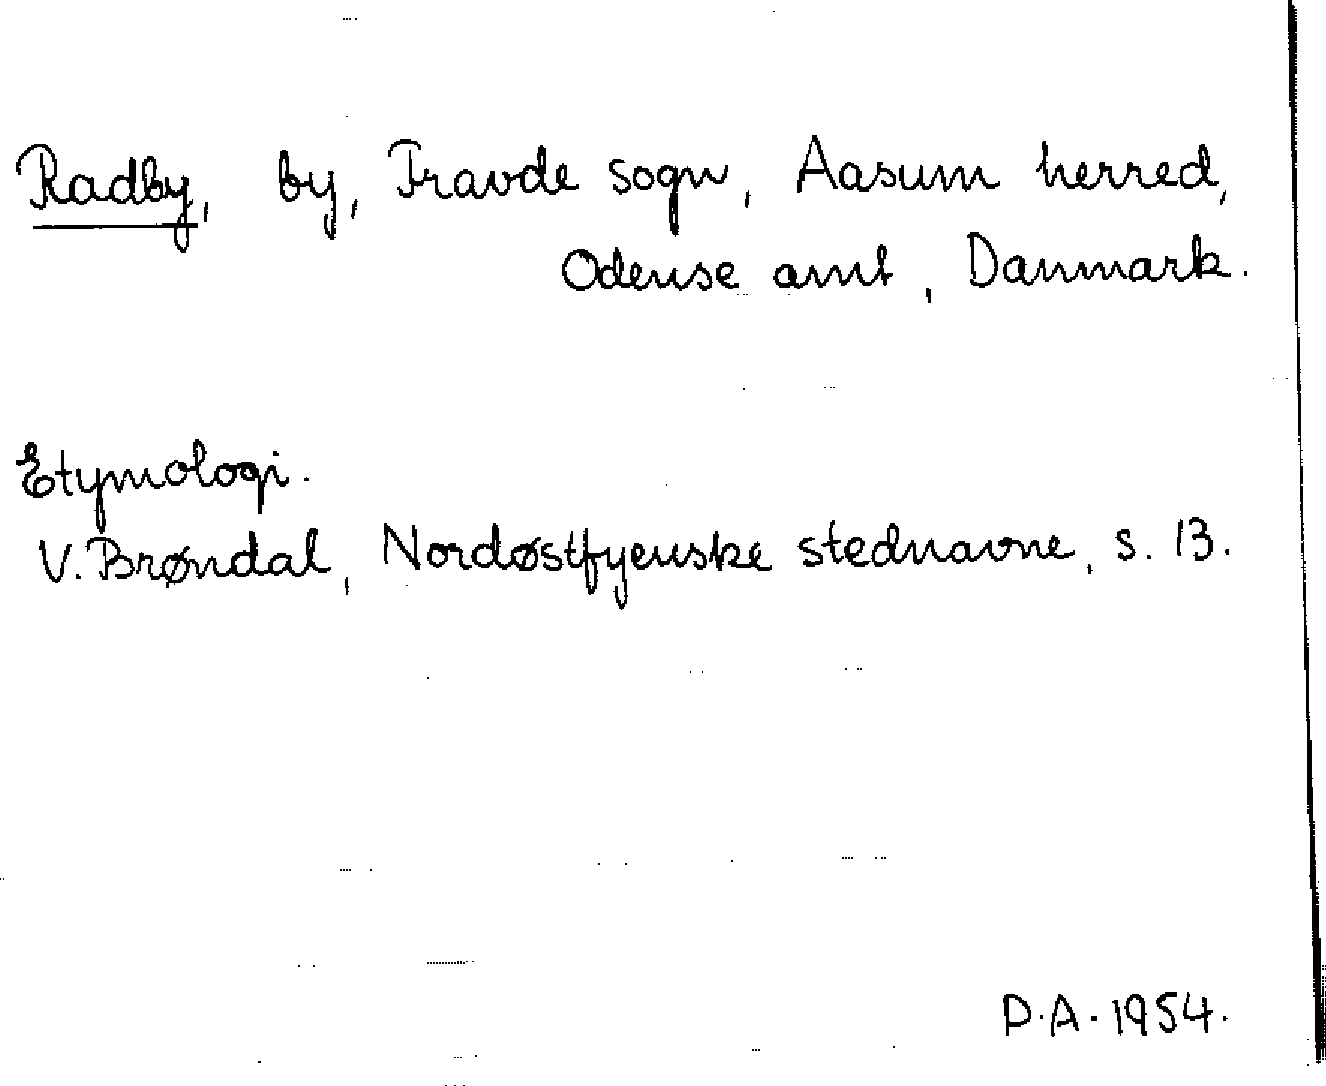 Radby, by, Fravde sogn, Aasum herred,
Odense amt, Danmark.
Etymologi.
V. Brøndal, Nordøstfyenske stednavne, s. 13.
P.A. 1954.